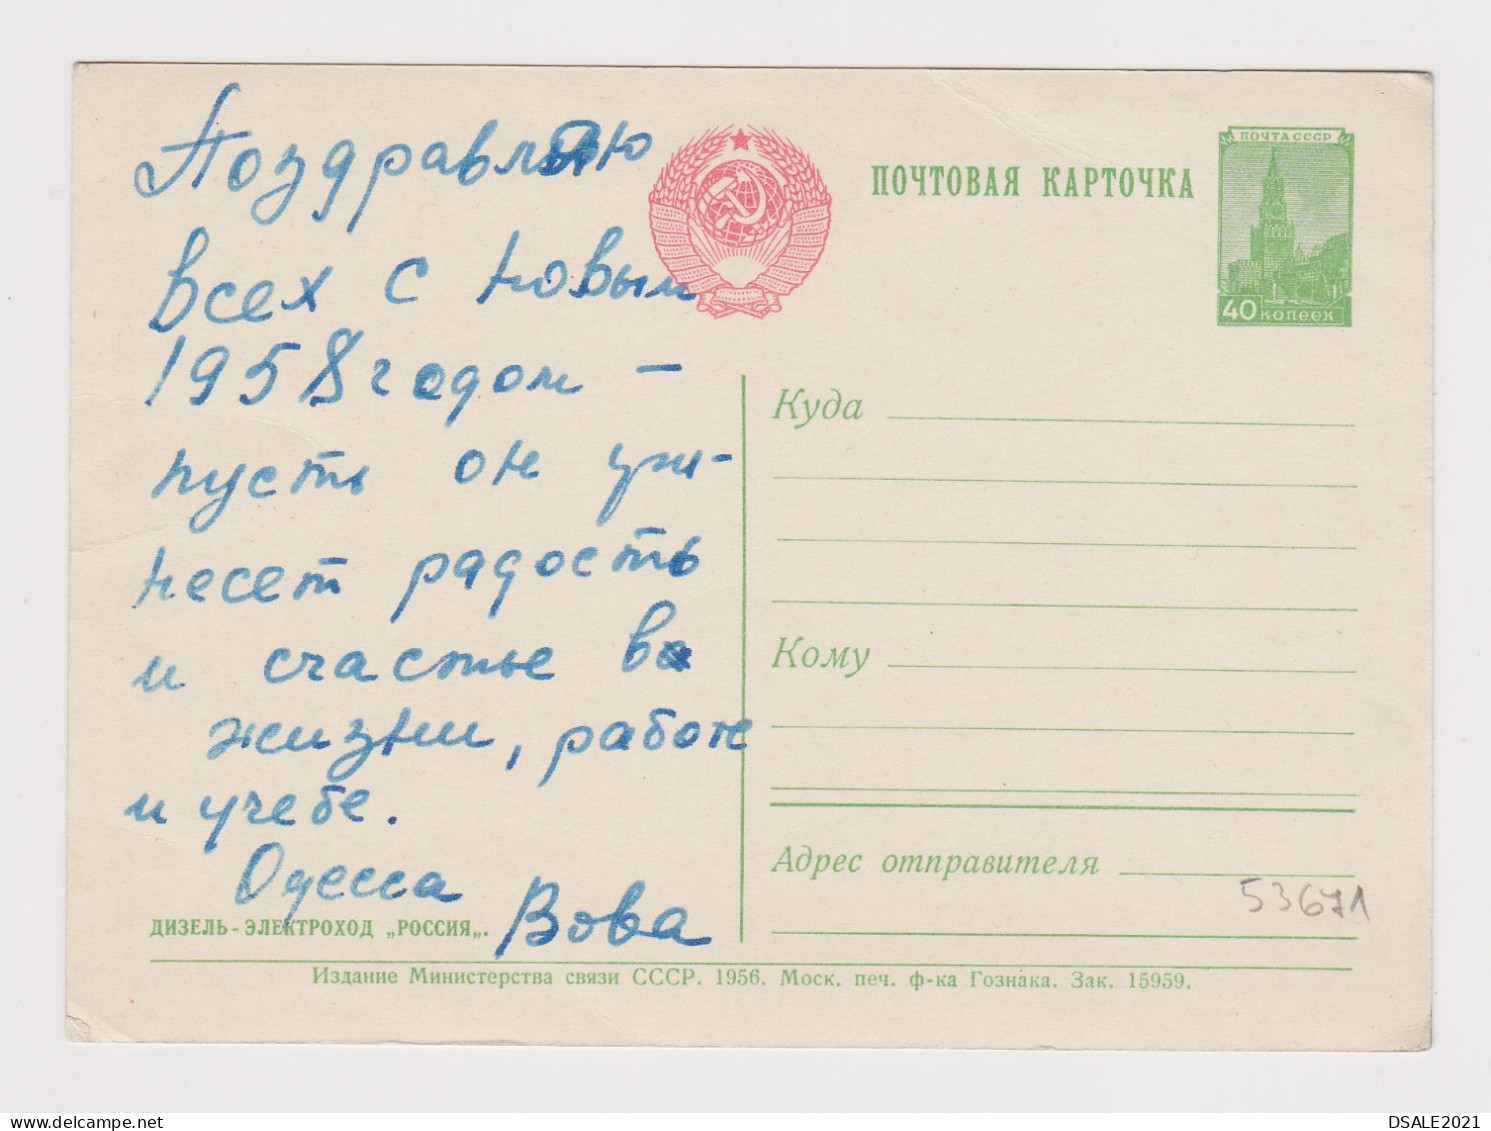 Поздравляю
всех с новым
1958 годом –
пусть он при-
несет радость
и счастье в
жизни, работе
и учебе.
Одесса
Вова
ДИЗЕЛЬ-ЭЛЕКТРОХОД „РОССИЯ„.
ПОЧТОВАЯ КАРТОЧКА
ПОЧТА СССР
40 КОПЕЕК
Куда
Кому
Адрес отправителя
53671
Издание Министерства связи СССР. 1956. Моск. печ. ф-ка Гознака. Зак. 15959.
DSALE2021